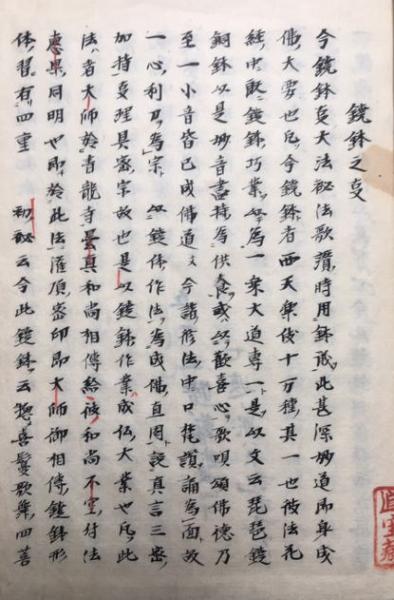 鐃鉢之事
今鐃鉢事大法秘法歌讃時用鉢或此甚深妙道即身成
佛大要也凡今鐃鉢者西天樂伎十万種其一也彼法花
經中歌鐃鉢巧業以為一乘大道專一是以文云琵琶鐃
銅鉢以是妙音盡持為供養或以歡喜心歌唄頌佛德乃
至一小音皆已成佛道文今諸修法中口誦為面故
一心利為宗以鐃鉢作法為成佛直因說真言三密
加持事理具密宗故也是以鐃鉢作業成仏大業也凡此
法者大師於青龍寺曇真和尚相傳給彼和尚不空付法
惠果同明也即於此法灌頂密印即大師御相傳鐃鉢形
体習有四重 初秘云今此鐃鉢云惣喜鬘歌舞四菩